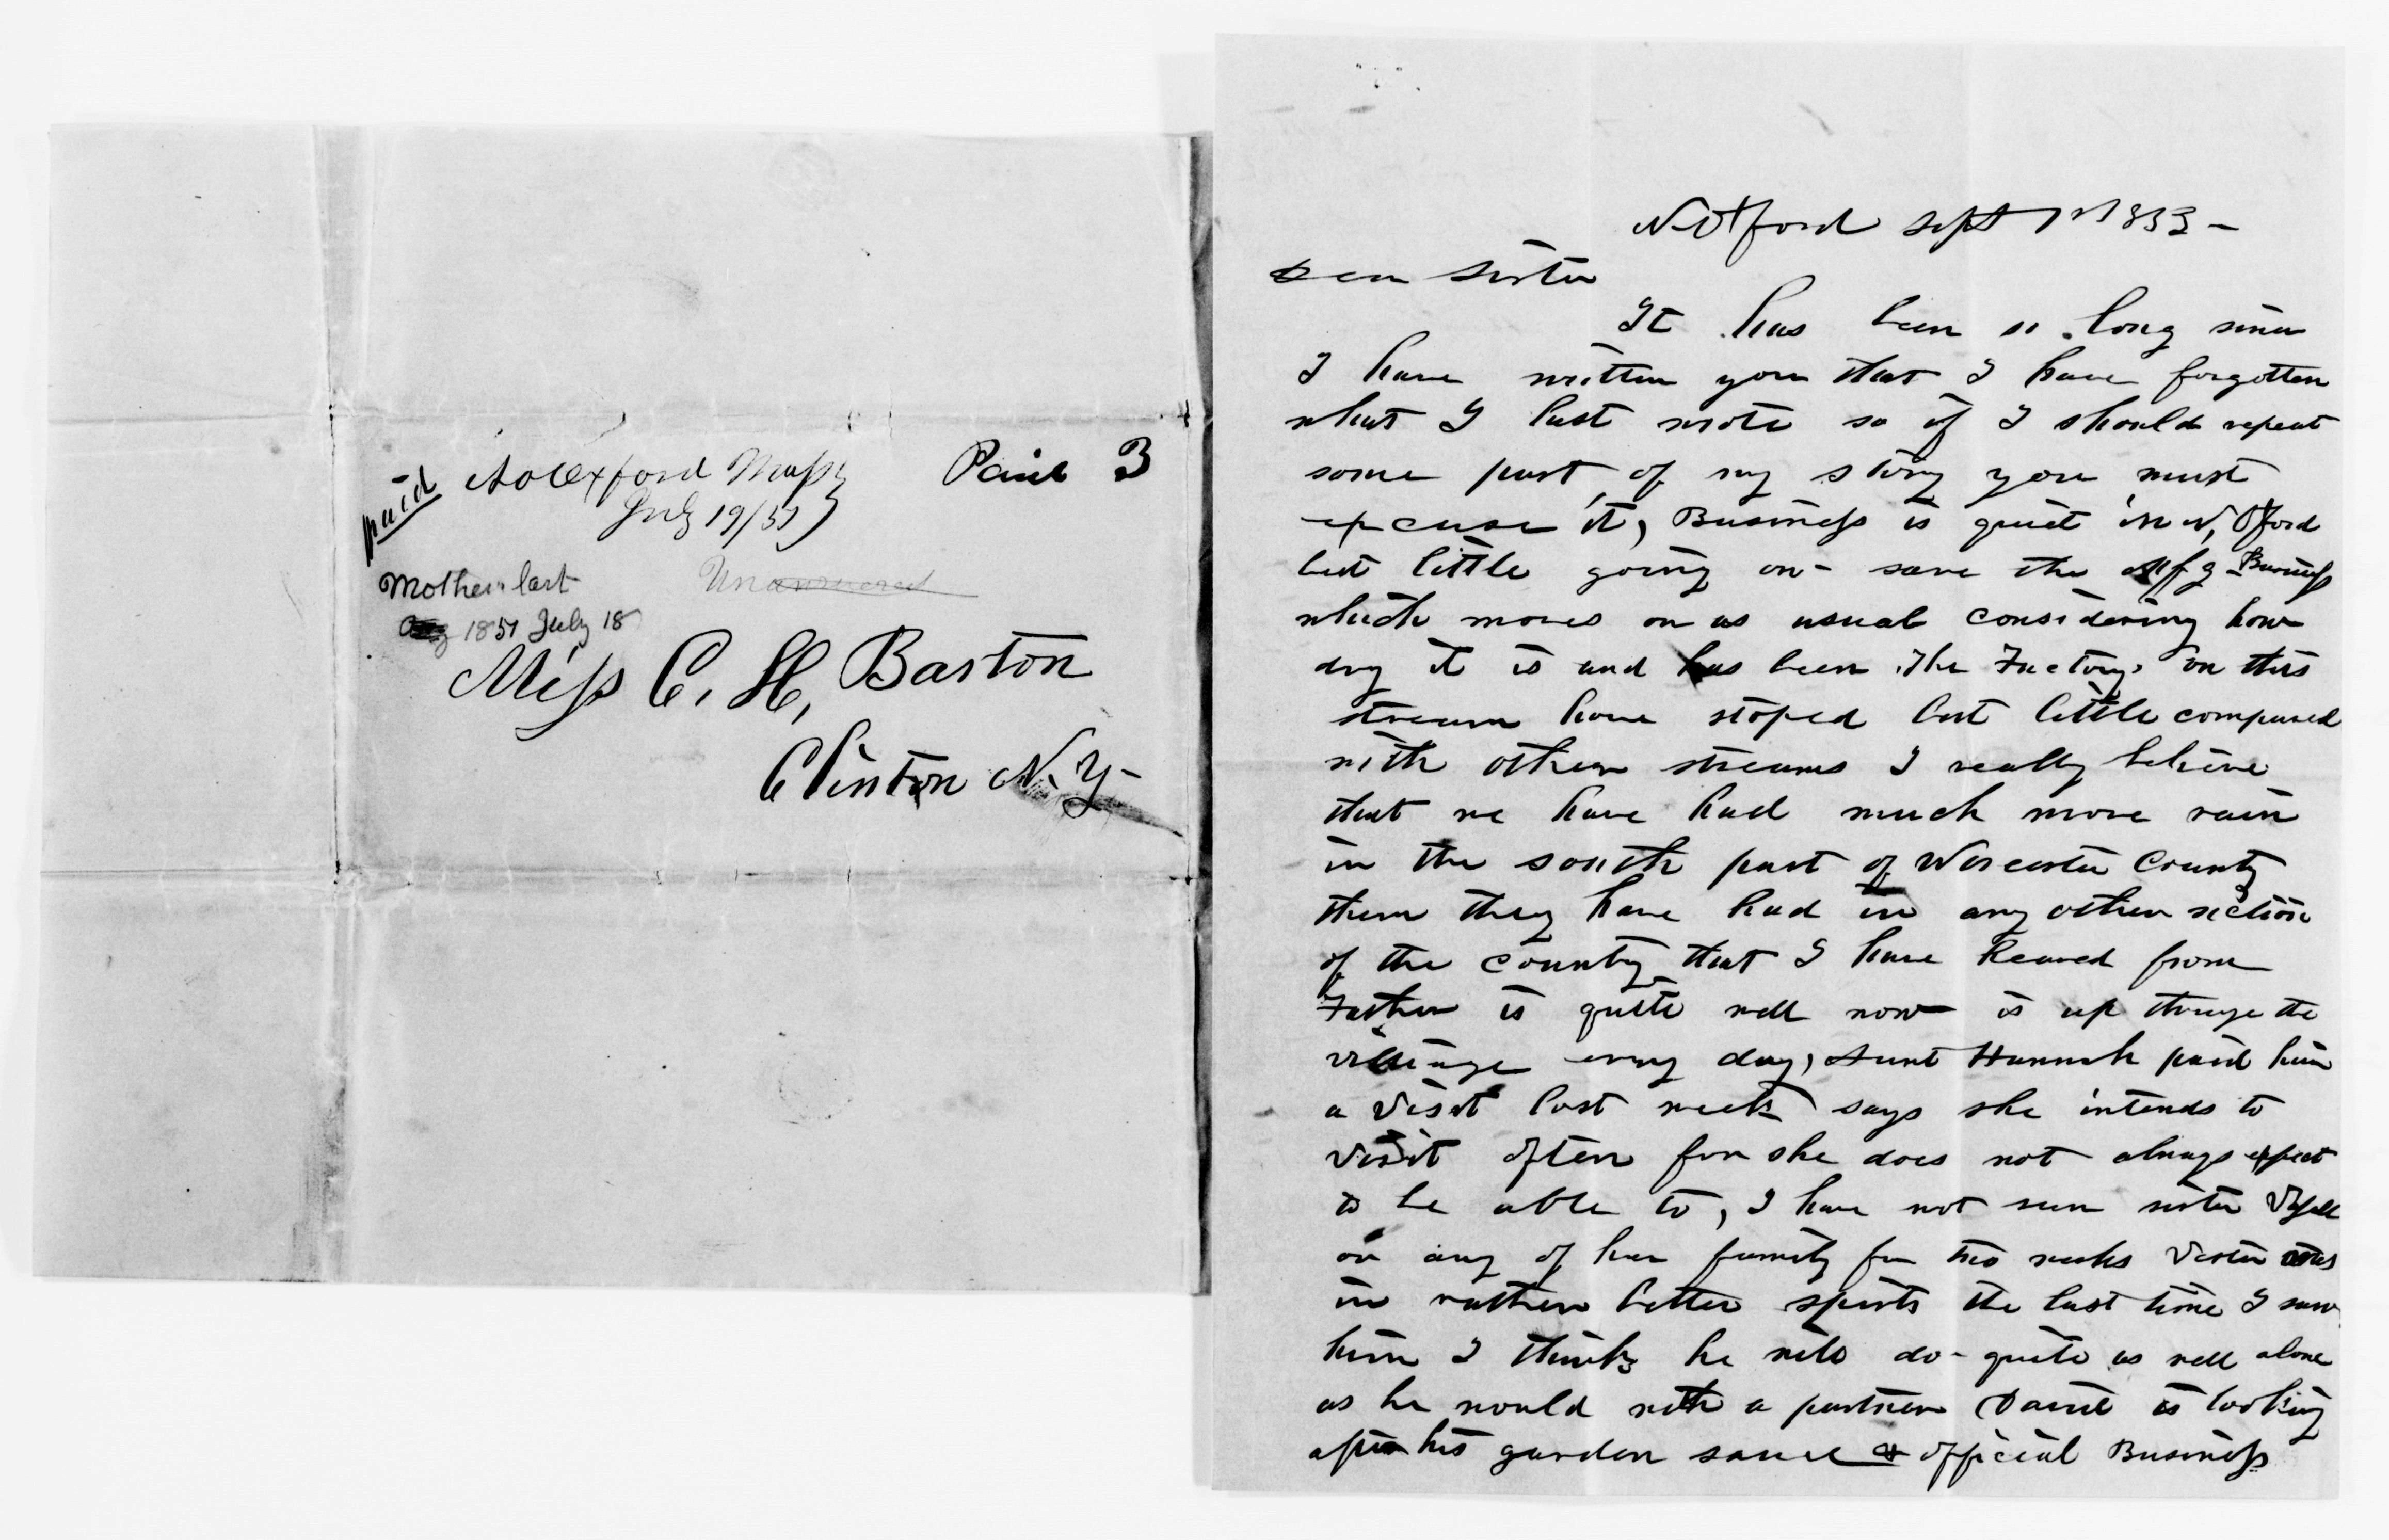 paid
No Oxford Mass
July 19/51
Paid 3
Mothers last
Unanswered
Aug 1851 July 18
Miss C. H, Barton
Clinton N. Y-
N Oxford Sept 1st 1853 -
Dear Sister
It has been so long since
I have written you that I have forgotten
what I last wrote so if I should repeat
some part of my story you must
excuse it, Business is quiet in N, Oxford
but little going on - save the Mfg Business
which moves on as usual considering how
dry it is and has been The Factorys on this
stream have stoped but little compared
with other streams I really believe
that we have had much more rain
in the south part of Worcester County
then they have had in any other section
of the county that I have heared from
Father is quite well now is up thruge the
village every day, Aunt Hannah paid him
a visit last week says she intends to
visit often for she does not always expect
to be able to, I have not seen sister Vassall
or any of her family for two weeks Vester was
in rather better spirits the last time I saw
him I think he will do - quite as well alone
as he would with a partner David is looking
after his garden sauce & official Business